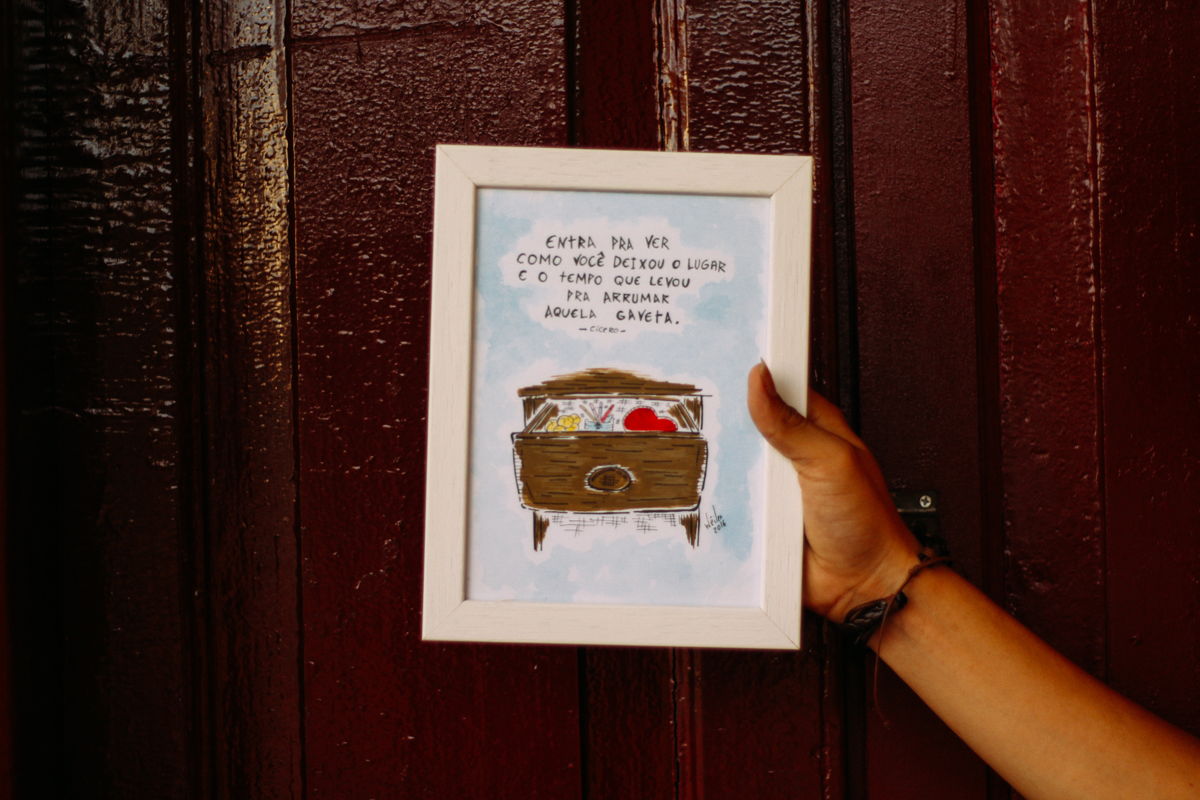 ENTRA PRA VER
COMO VOCÊ DEIXOU O LUGAR
E O TEMPO QUE LEVOU
PRA ARRUMAR
AQUELA GAVETA.
- CÍCERO -
2016